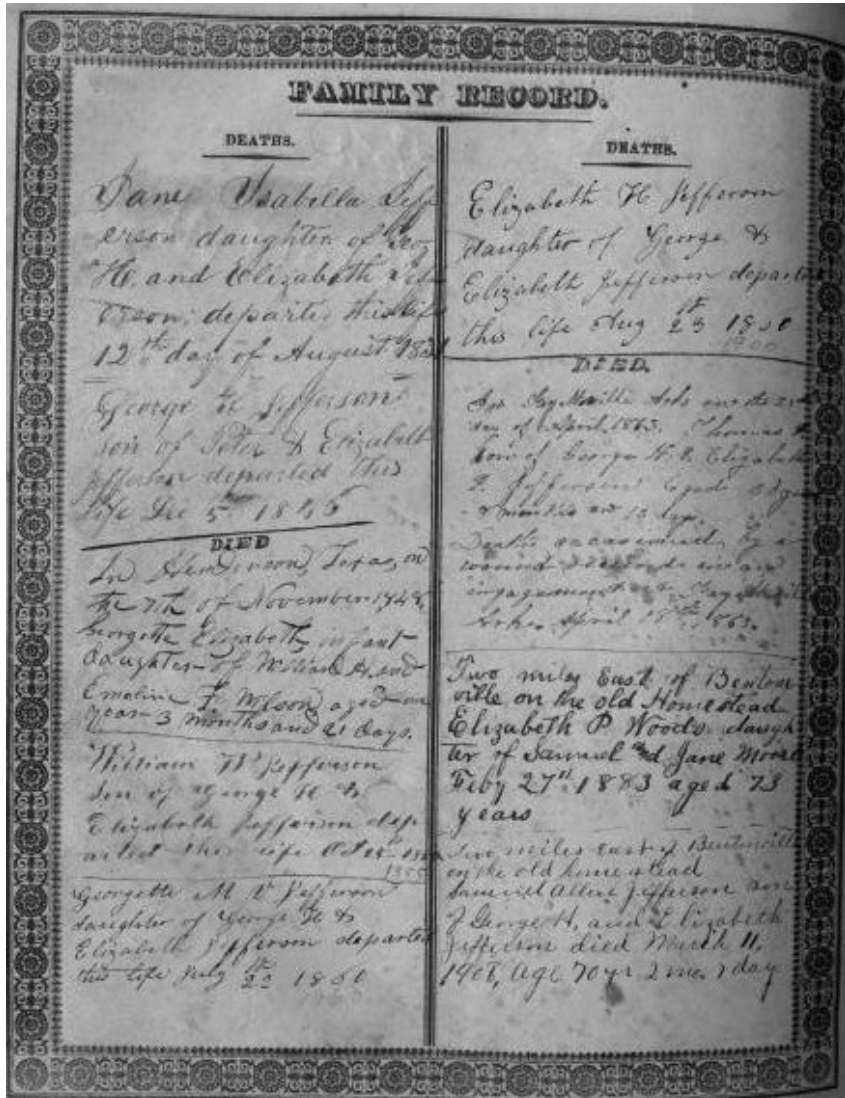 FAMILY RECORD.
DEATHS.
Jane Isabella Jeff
erson daughter of Geo
H. and Elizabeth Jeff
erson, departed this life
12th day of August 183
George H Jefferson
son of Peter & Elizabeth
Jefferson departed this
life Dec 5th 1846
DIED
In Henderson, Texas, on
the 7th of November 1848,
Georgette Elizabeth, infant
daughter of William H. and
Emeline F. Wilson aged one
year 3 months and 21 days.
William W Jefferson
Son of George H &
Elizabeth Jefferson dep
arted this life Oct
1855
Georgette M V Jefferson
daughter of George H &
Elizabeth Jefferson departed
this life July 23 1860
DEATHS.
Elizabeth H Jefferson
daughter of George &
Elizabeth Jefferson departed
this life Aug 23 1860
DIED.
Fayetteville Arks on the
day of April, 1863. Thomas
Son of George H. & Elizabeth
P. Jefferson aged
months and 13 days.
Death occasioned by a
wound received in an
engagement at Fayetteville
Arks. April 18th 1863.
Two miles East of Benton
ville on the old Homestead
Elizabeth P Woods daugh
ter of Samuel and Jane Moore
Feby 27th 1883 aged 73
years
Two miles east of Bentonville
on the old homestead
Samuel Albert Jefferson son
of George H. and Elizabeth
Jefferson died March 11,
1908, age 70 yr 2 mo. 1 day